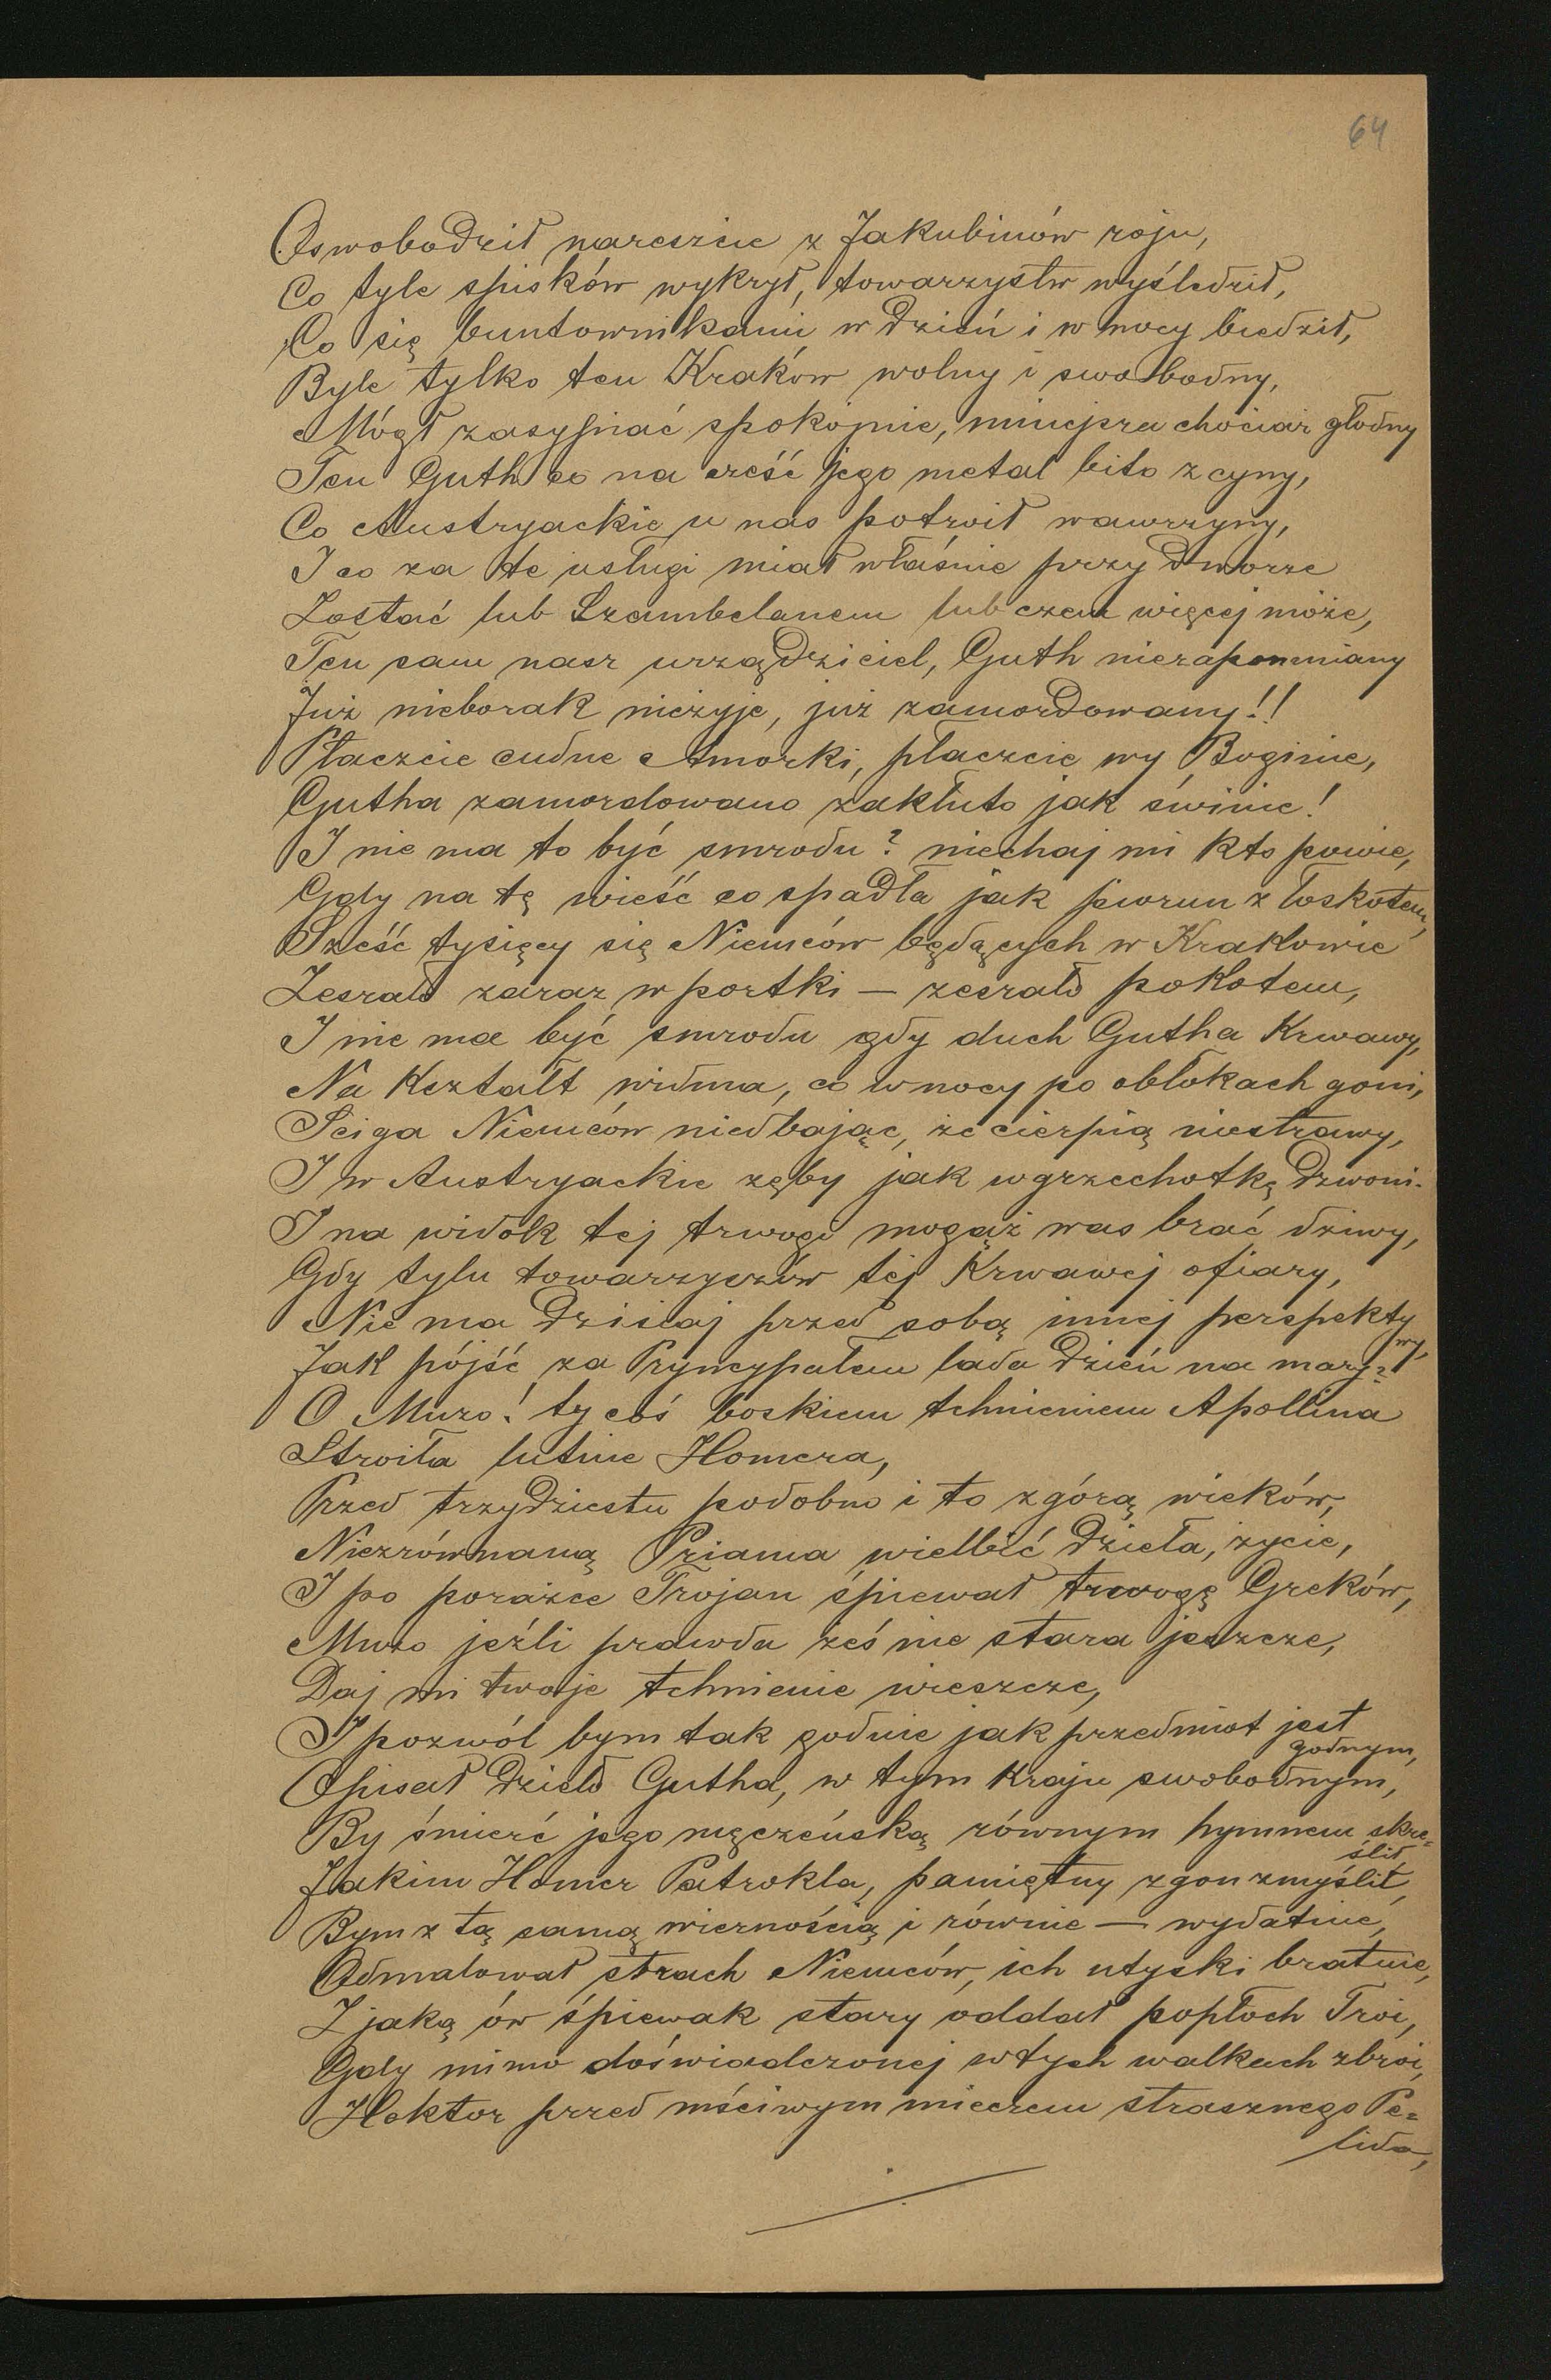 64
Oswobodził nareszcie z Jakubinów roju,
Co tyle spisków wykrył, towarzystw wyśledził,
Co się buntownikami w dzień i w nocy biedził,
Byle tylko ten Kraków wolny i swobodny,
Mógł zasypiać spokojnie, mniejsza chociaż głodny
Ten Guth co na cześć jego metal bito z cyny,
Co Austryackie u nas potroił wawrzyny,
I co za te usługi miał właśnie przy dworze
Zostać lub Szambelanem lub czem więcej może,
Ten sam nasz urządziciel, Guth niezapomniany
Już nieborak nieżyje, już zamordowany!!
Płaczcie cudne Amorki, płaczcie wy Boginie,
Gutha zamordowano zakłuto jak świnie!
I nie ma to być smrodu? niechaj mi kto powie,
Gdy na tę wieść co spadła jak piorun z łoskotem,
Sześć tysięcy się Niemców będących w Krakowie
Zesrało zaraz w portki — zesrało pokotem,
I nie ma być smrodu gdy duch Gutha Krwawy,
Na Kształt widma, co w nocy po obłokach goni,
Ściga Niemców niedbając, że cierpią niestrawy,
I w Austryackie zęby jak w grzechotkę dzwoni.
I na widok tej trwogi mogąż was brać dziwy,
Gdy tylu towarzyszów tej Krwawej ofiary,
Nie ma dzisiaj przed sobą innej perspekty
wy,
Jak pójść za Pryncypałem lada dzień na mary?
O Muzo! ty coś boskiem tchnieniem Apollina
Stroiła lutnie Homera,
Przed trzydziestu podobno i to z górą wieków,
Niezrównaną Priama wielbić dzieła, życie,
I po porażce Trojan śpiewał trwogę Greków,
Muzo jeźli prawda żeś nie stara jeszcze,
Daj mi twoje tchnienie wieszcze,
I pozwól bym tak godnie jak przedmiot jest
godnym,
Opisał dzieło Gutha, w tym Kraju swobodnym,
By śmierć jego męczeńską równym hymnem skre=
ślił,
Jakim Homer Patrokla, pamiętny zgon zmyślił,
Bym z tą samą wiernością i równie — wydatnie,
Odmalował strach Niemców, ich utyski bratnie,
Z jaką ów śpiewak stary oddał popłoch Troi,
Gdy mimo doświadczonej w tych walkach zbroi,
Hektor przed mściwym mieczem strasznego Pe=
lida,